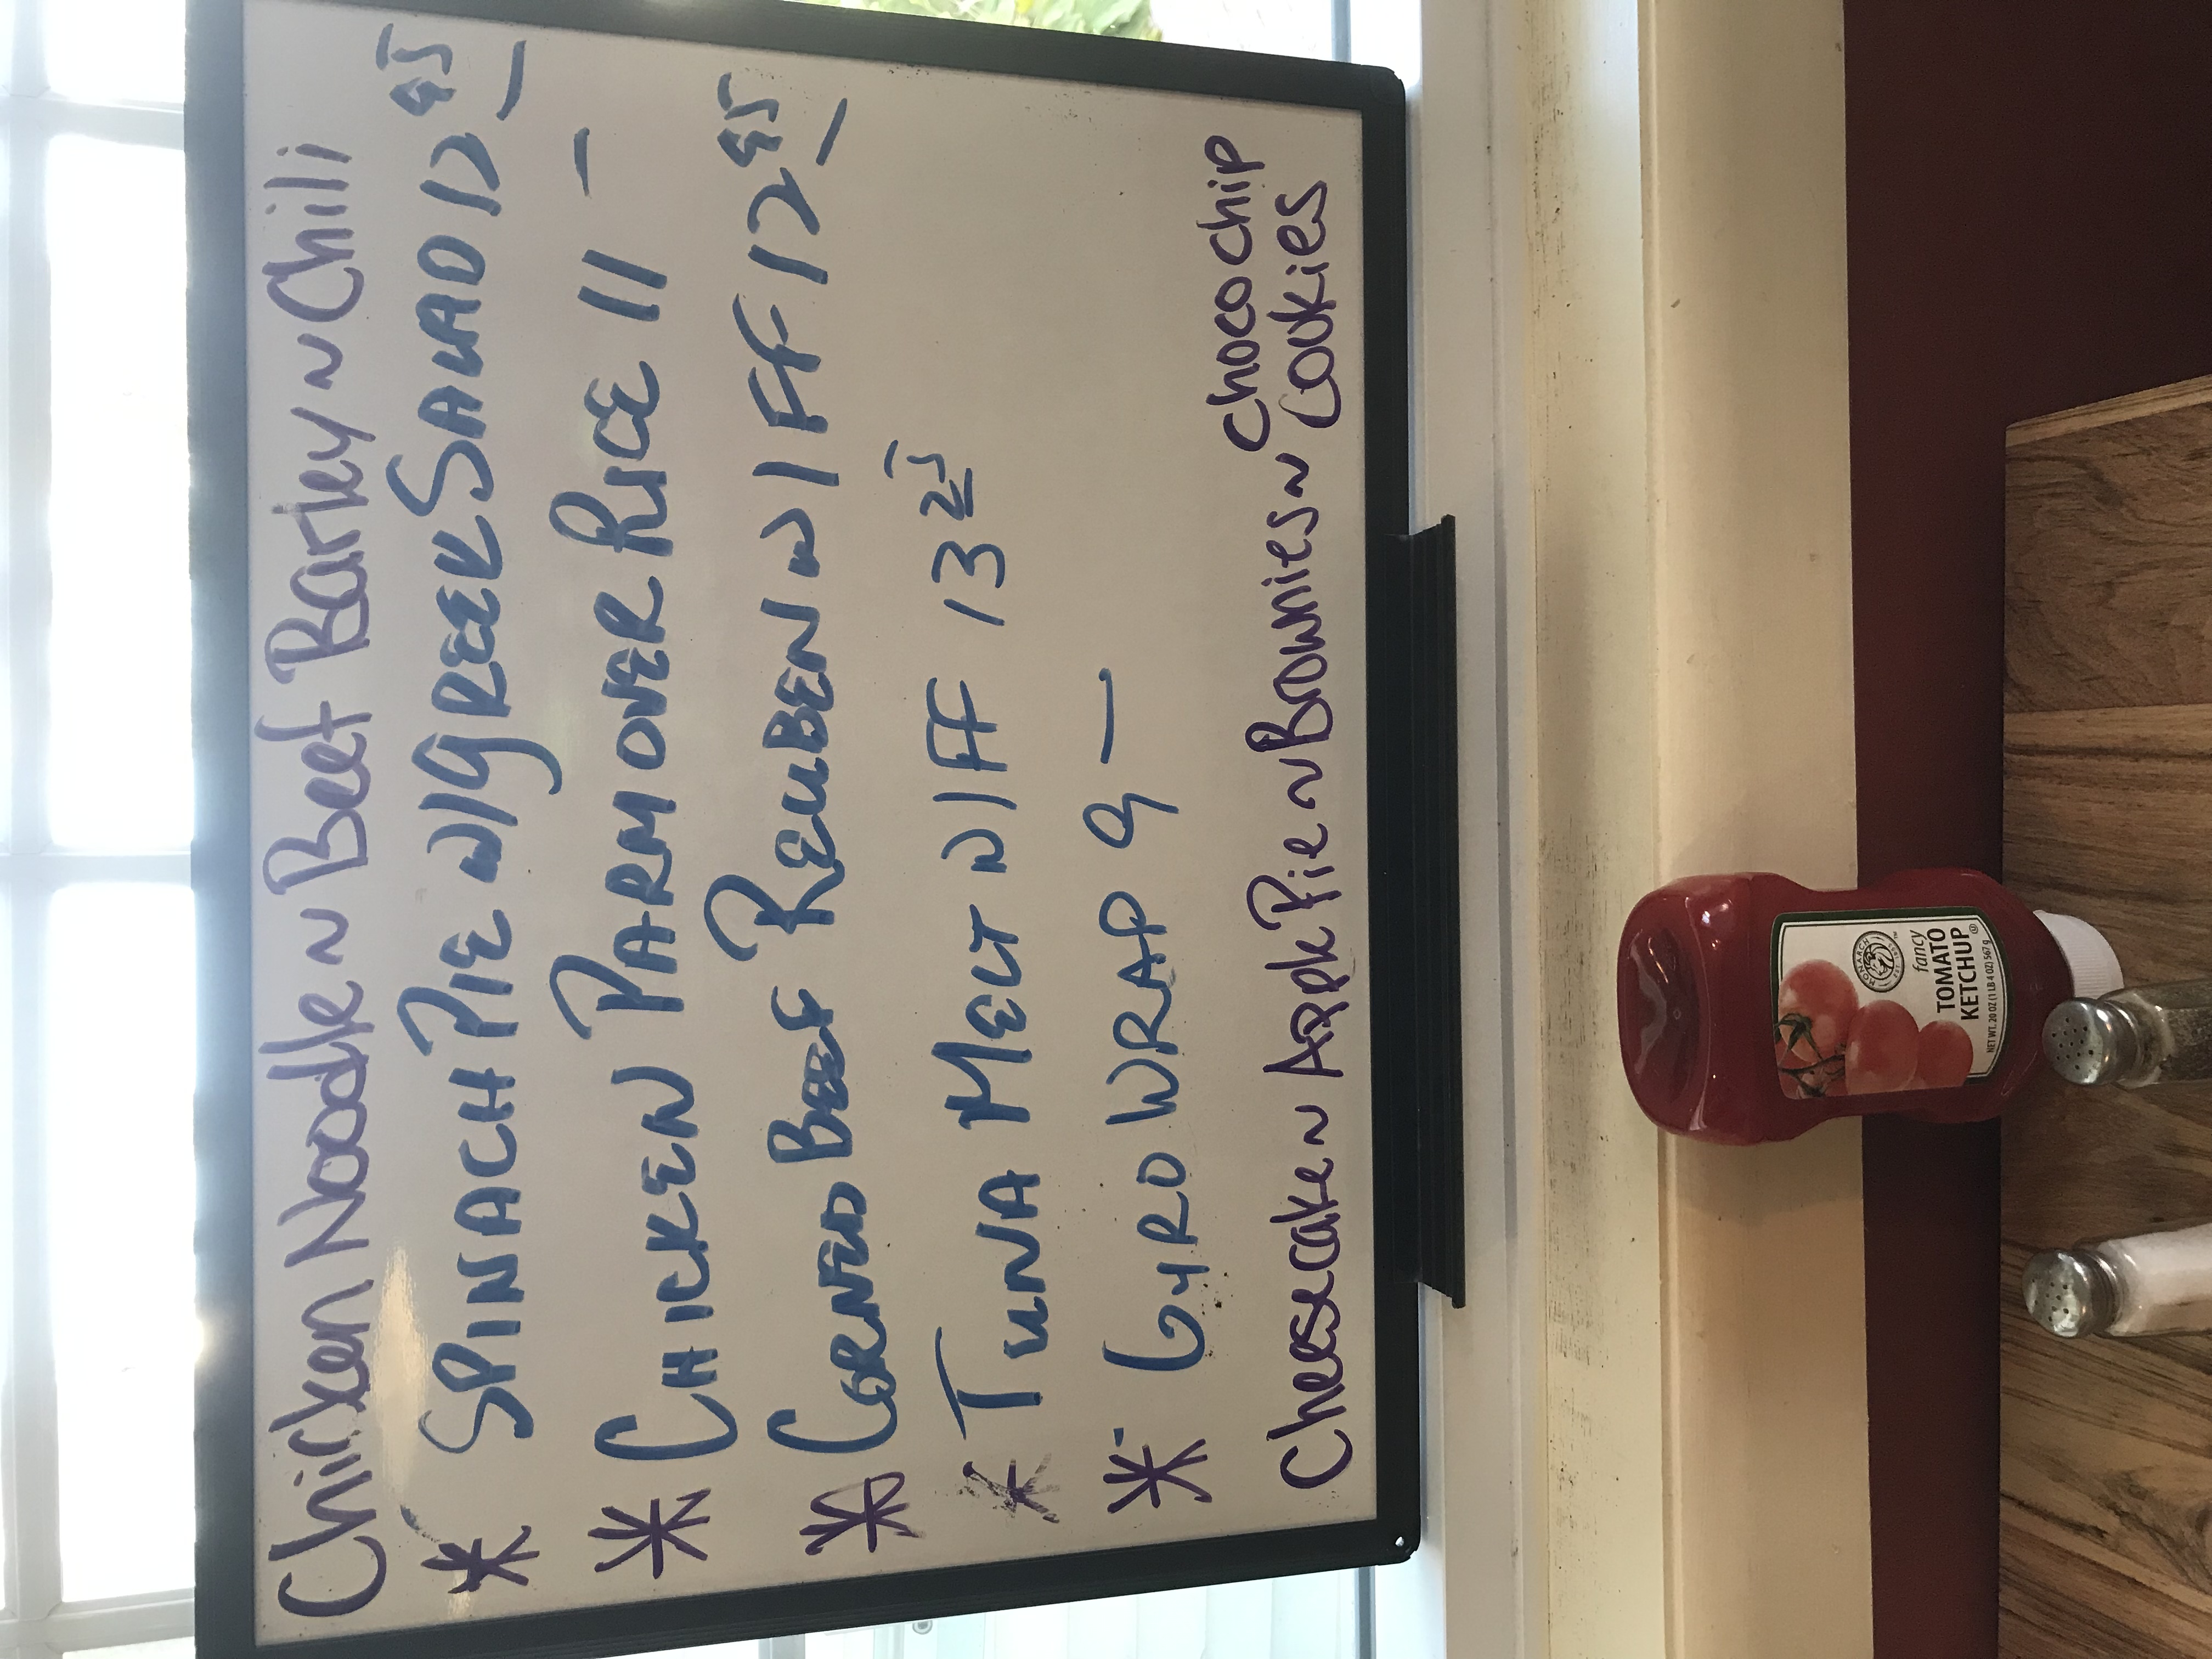 Chicken Noodle ~ Beef Barley ~ Chili
* SPINACH PIE W/GREEK SALAD 12 95
* CHICKEN PARM OVER RICE 11 —
* CORNED BEEF REUBEN W/FF 12 95
* TUNA MELT W/FF 13 25
* GYRO WRAP 9 —
Cheesecake ~ Apple Pie ~ Brownies ~ Choco Chip
Cookies
MONARCH
fancy
TOMATO
KETCHUP
NET WT. 20 OZ (1 LB 4 OZ) 567g